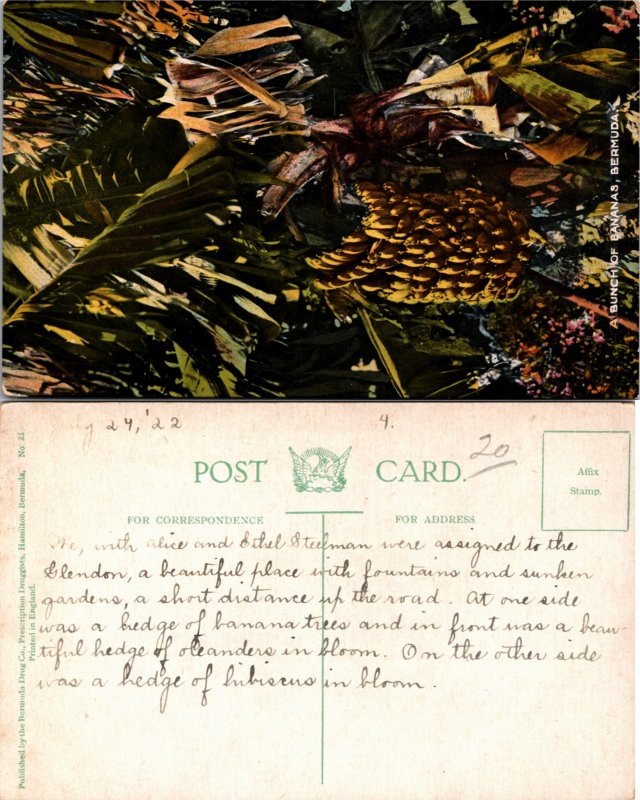 A BUNCH OF BANANAS, BERMUDA.
July 24, '22
4.
20
POST CARD.
Affix
Stamp.
FOR CORRESPONDENCE
FOR ADDRESS
We, with Alice and Ethel Steelman were assigned to the
Glendon, a beautiful place with fountains and sunken
gardens, a short distance up the road. At one side
was a hedge of banana trees and in front was a beau-
tiful hedge of oleanders in bloom. On the other side
was a hedge of hibiscus in bloom.
Published by the Bermuda Drug Co., Prescription Druggists, Hamilton, Bermuda. No. 25
Printed in England.